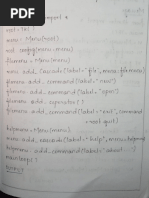 import *
root = Tk()
menu = Menu(root)
root.config(menu=menu)
filemenu = Menu(menu)
menu.add_cascade(label="file", menu=filemenu)
filemenu.add_command(label="new")
filemenu.add_command(label="open")
filemenu.add_separator()
filemenu.add_command(label="exit", command
=root.quit)
helpmenu = Menu(menu)
menu.add_cascade(label="help", menu=helpmenu)
helpmenu.add_command(label="about")
mainloop()